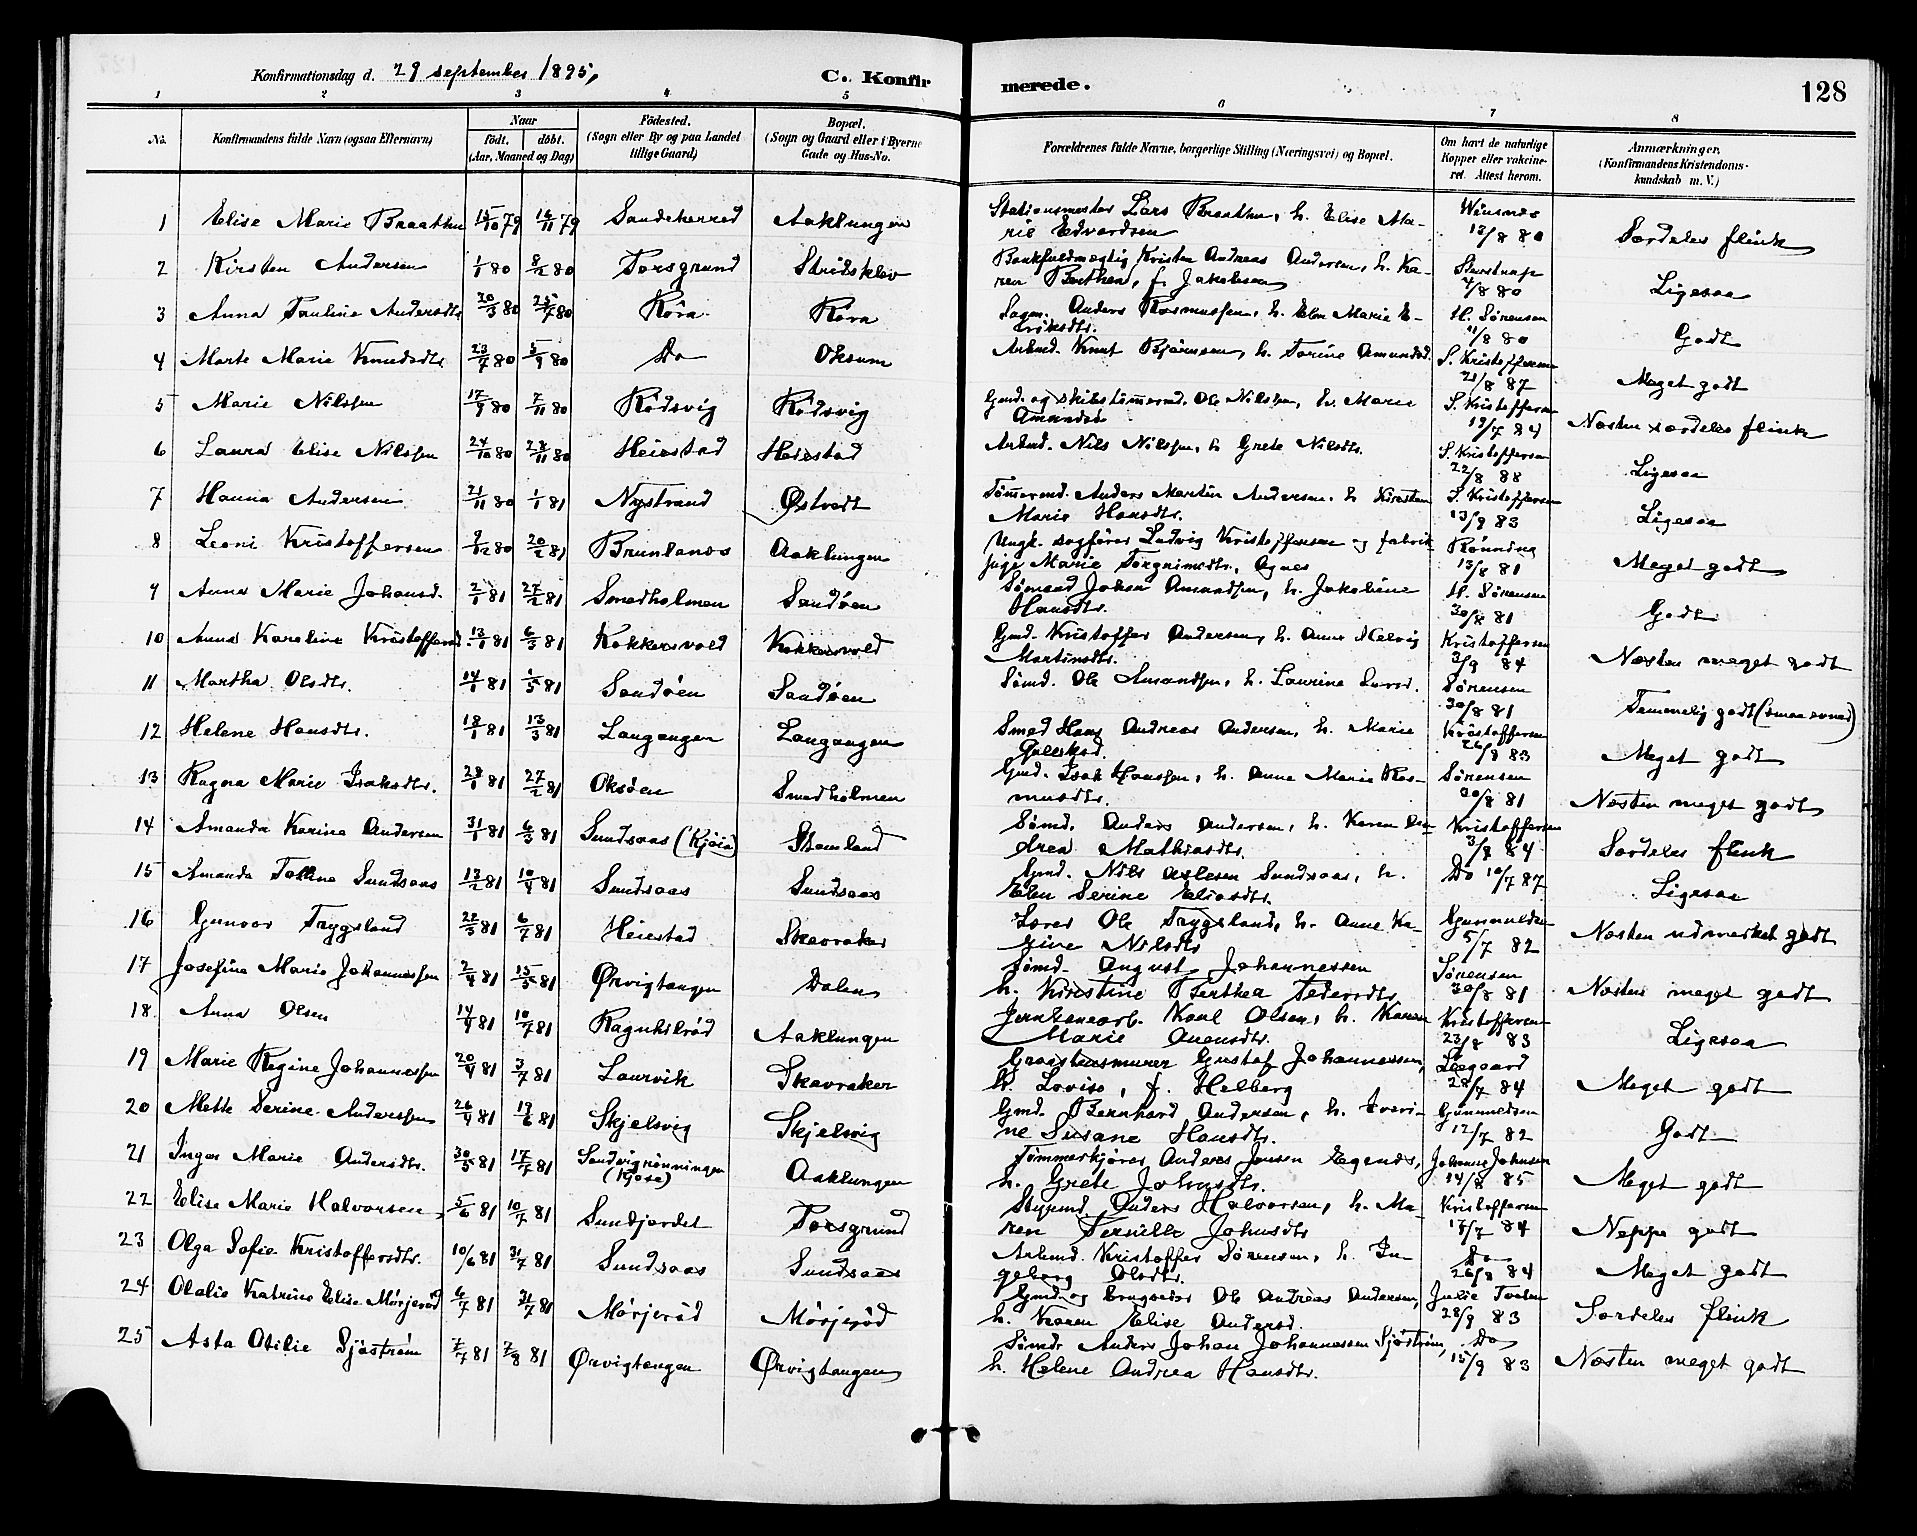 Konfirmationsdag d. 29 september 1895,
C. Konfirmerede.
128
1 2 3 4 5 6 7 8
No. Konfirmandens fulde Navn (ogsaa Efternavn) Naar født. døbt. (Aar, Maaned og Dag) Fødested. (Sogn eller By og paa Landet tillige Gaard) Bopæl. (Sogn og Gaard eller i Byerne Gade og Hus-No. Forældrenes fulde Navne, borgerlige Stilling (Næringsvei) og Bopæl. Om havt de naturlige Kopper eller vakcineret. Attest herom. Anmærkninger. (Konfirmandens Kristendomskundskab m. V.)
1 Elise Marie Braathen 15/10 79 16/11 79 Sandeherred Aaklungen Stationsmester Lars Braathen, h. Elise Marie Edvardsen 12/8 80 Særdeles flink
2 Kirsten Andersen 1/1 80 8/2 80 Porsgrund Stridsklev Bankfuldmægtig Kristen Andreas Andersen, h. Karen Berthea, f. Jakobsen 4/8 80 Ligesaa
3 Anna Pauline Andersdtr. 30/3 80 25/7 80 Röra Röra Anders Rasmussen, h. Elen Marie Eriksdtr. H. Sørensen 11/8 80 Godt
4 Marte Marie Knudsdtr. 23/7 80 5/9 80 Do Oksum Arbmd. Knut Bjørnsen, h. Torine Amundsd. S. Kristoffersen 21/8 87 Meget godt
5 Marie Nilssen 17/9 80 7/11 80 Rödsvig Rödsvig Gmd. og skibstømmermd. Ole Nilssen, h. Marie Amundsd. S. Kristoffersen 19/7 84 Næsten særdeles flink
6 Laura Elise Nilssen 24/10 80 28/11 80 Heiestad Heiestad Arbmd. Nils Nilssen, h Grete Nilsdtr. S. Kristoffersen 22/8 88 Ligesaa
7 Hanna Andersen 21/11 80 1/1 81 Nystrand Østvedt Tømmermd. Anders Martin Andersen. h Kirsten Marie Hansdtr. S. Kristoffersen 13/8 83 Ligesaa
8 Leoni Kristoffersen 9/12 80 20/2 81 Brunlanes Aaklungen Ungk. sagfører Ludvig Kristoffersen og fabrikpige Marie Torgrimsdtr. Rönning 13/8 81 Meget godt
9 Anna Marie Johansd. 2/1 81 27/2 81 Smedholmen Sandøen Sømand Johan Amundsen, h. Jakobine Hansdtr. H. Sörensen 30/8 81 Godt
10 Anna Karoline Kristoffersd. 13/1 81 6/3 81 Kokkersvold Kokkersvold Gmd. Kristoffer Andersen, h. Anne Helvig Martinsdtr. Kristoffersen 3/9 84 Næsten meget godt
11 Martha Olsdtr. 14/1 81 1/5 81 Sandøen Sandøen Sømd. Ole Amundsen, h. Laurine Sörensen 30/8 81 Temmelig godt (smaa evner)
12 Helene Hansdtr. 18/1 81 13/3 81 Langangen Langangen Smed Hans Andreas Andersen, h. Marie Kristoffersen 26/8 83 Meget godt
13 Ragna Marie Isaksdtr. 28/1 81 27/2 81 Oksöen Smedholmen Gmd. Isak Hanssen, h. Anne Marie Rasmusdtr. Sörensen 30/8 81 Næsten meget godt
14 Amanda Karine Andersen 31/1 81 6/3 81 Sundsaas (Kjøia) Stamland Sømd. Anders Andersen, h. Karen Andrea Mathiasdtr. Kristoffersen 3/8 84 Særdeles flink
15 Amanda Tolline Sundsaas 13/2 81 10/4 81 Sundsaas Sundsaas Gmd. Nils Aslesen Sundsaas, h. Elen Serine Eliasdtr. Do 10/7 87 Ligesaa
16 Gunvor Trygsland 22/3 81 6/7 81 Heiestad Skavraker Lærer Ole Trygsland, h. Anne Karine Nilsdtr Gunnuldsen 5/7 82 Næsten udmærket godt
17 Josefine Marie Johannessen 2/4 81 15/5 81 Ørvigtangen Dalen Sømd. August Johannessen h. Kirstine Berthea Pedersdtr. Sørensen 30/8 81 Næsten meget godt
18 Anna Olsen 14/4 81 10/7 81 Ragnhilröd Aaklungen Jernbanearb. Karl Olsen, h. Karen Marie Kristoffersen 23/8 83 Ligesaa
19 Marie Regine Johannessen 20/4 81 3/7 81 Laurvik Skavraker Graastensmurer Gustaf Johannessen, h. Lovise, f. Helberg Leegaard 28/7 84 Meget godt
20 Mette Serine Anderssen 26/4 81 19/6 81 Skjelsvig Skjelsvig Gmd. Bernhard Andersen, h. Iverine Susane Hansdtr. Gunnuldsen 12/7 82 Godt
21 Inga Marie Andersdtr. 30/5 81 17/7 81 Sandvigrönningen (Kjose) Aaklungen Tømmerkjører Anders Jensen h. Grete Johnsdtr. Johanne Johnsen 14/8 85 Meget godt
22 Elise Marie Halvorsen 5/6 81 10/7 81 Sundjordet Porsgrund Styrmd. Anders Halvorsen, h. Maren Pernille Johnsdtr Kristoffersen 17/7 84 Neppe godt
23 Olga Sofie Kristoffersdtr. 10/6 81 31/7 81 Sundsaas Sundsaas Arbmd. Kristoffer Sørensen, h. Ingeborg Olsdtr. Do 26/8 84 Meget godt
24 Olalie Katrine Elise Mørjeröd 6/7 81 31/7 81 Mørjeröd Mørjeröd Gmd. og brugseier Ole Andreas Andersen, h. Karen Elise Andersd. Julie 28/9 83 Særdeles flink
25 Asta Otilie Sjöström 7/7 81 7/8 81 Ørvigtangen Ørvigtangen Sømd. Anders Johan Johannessen Sjöström, h. Helene Andrea Hansdtr. Do 15/9 83 Næsten meget godt